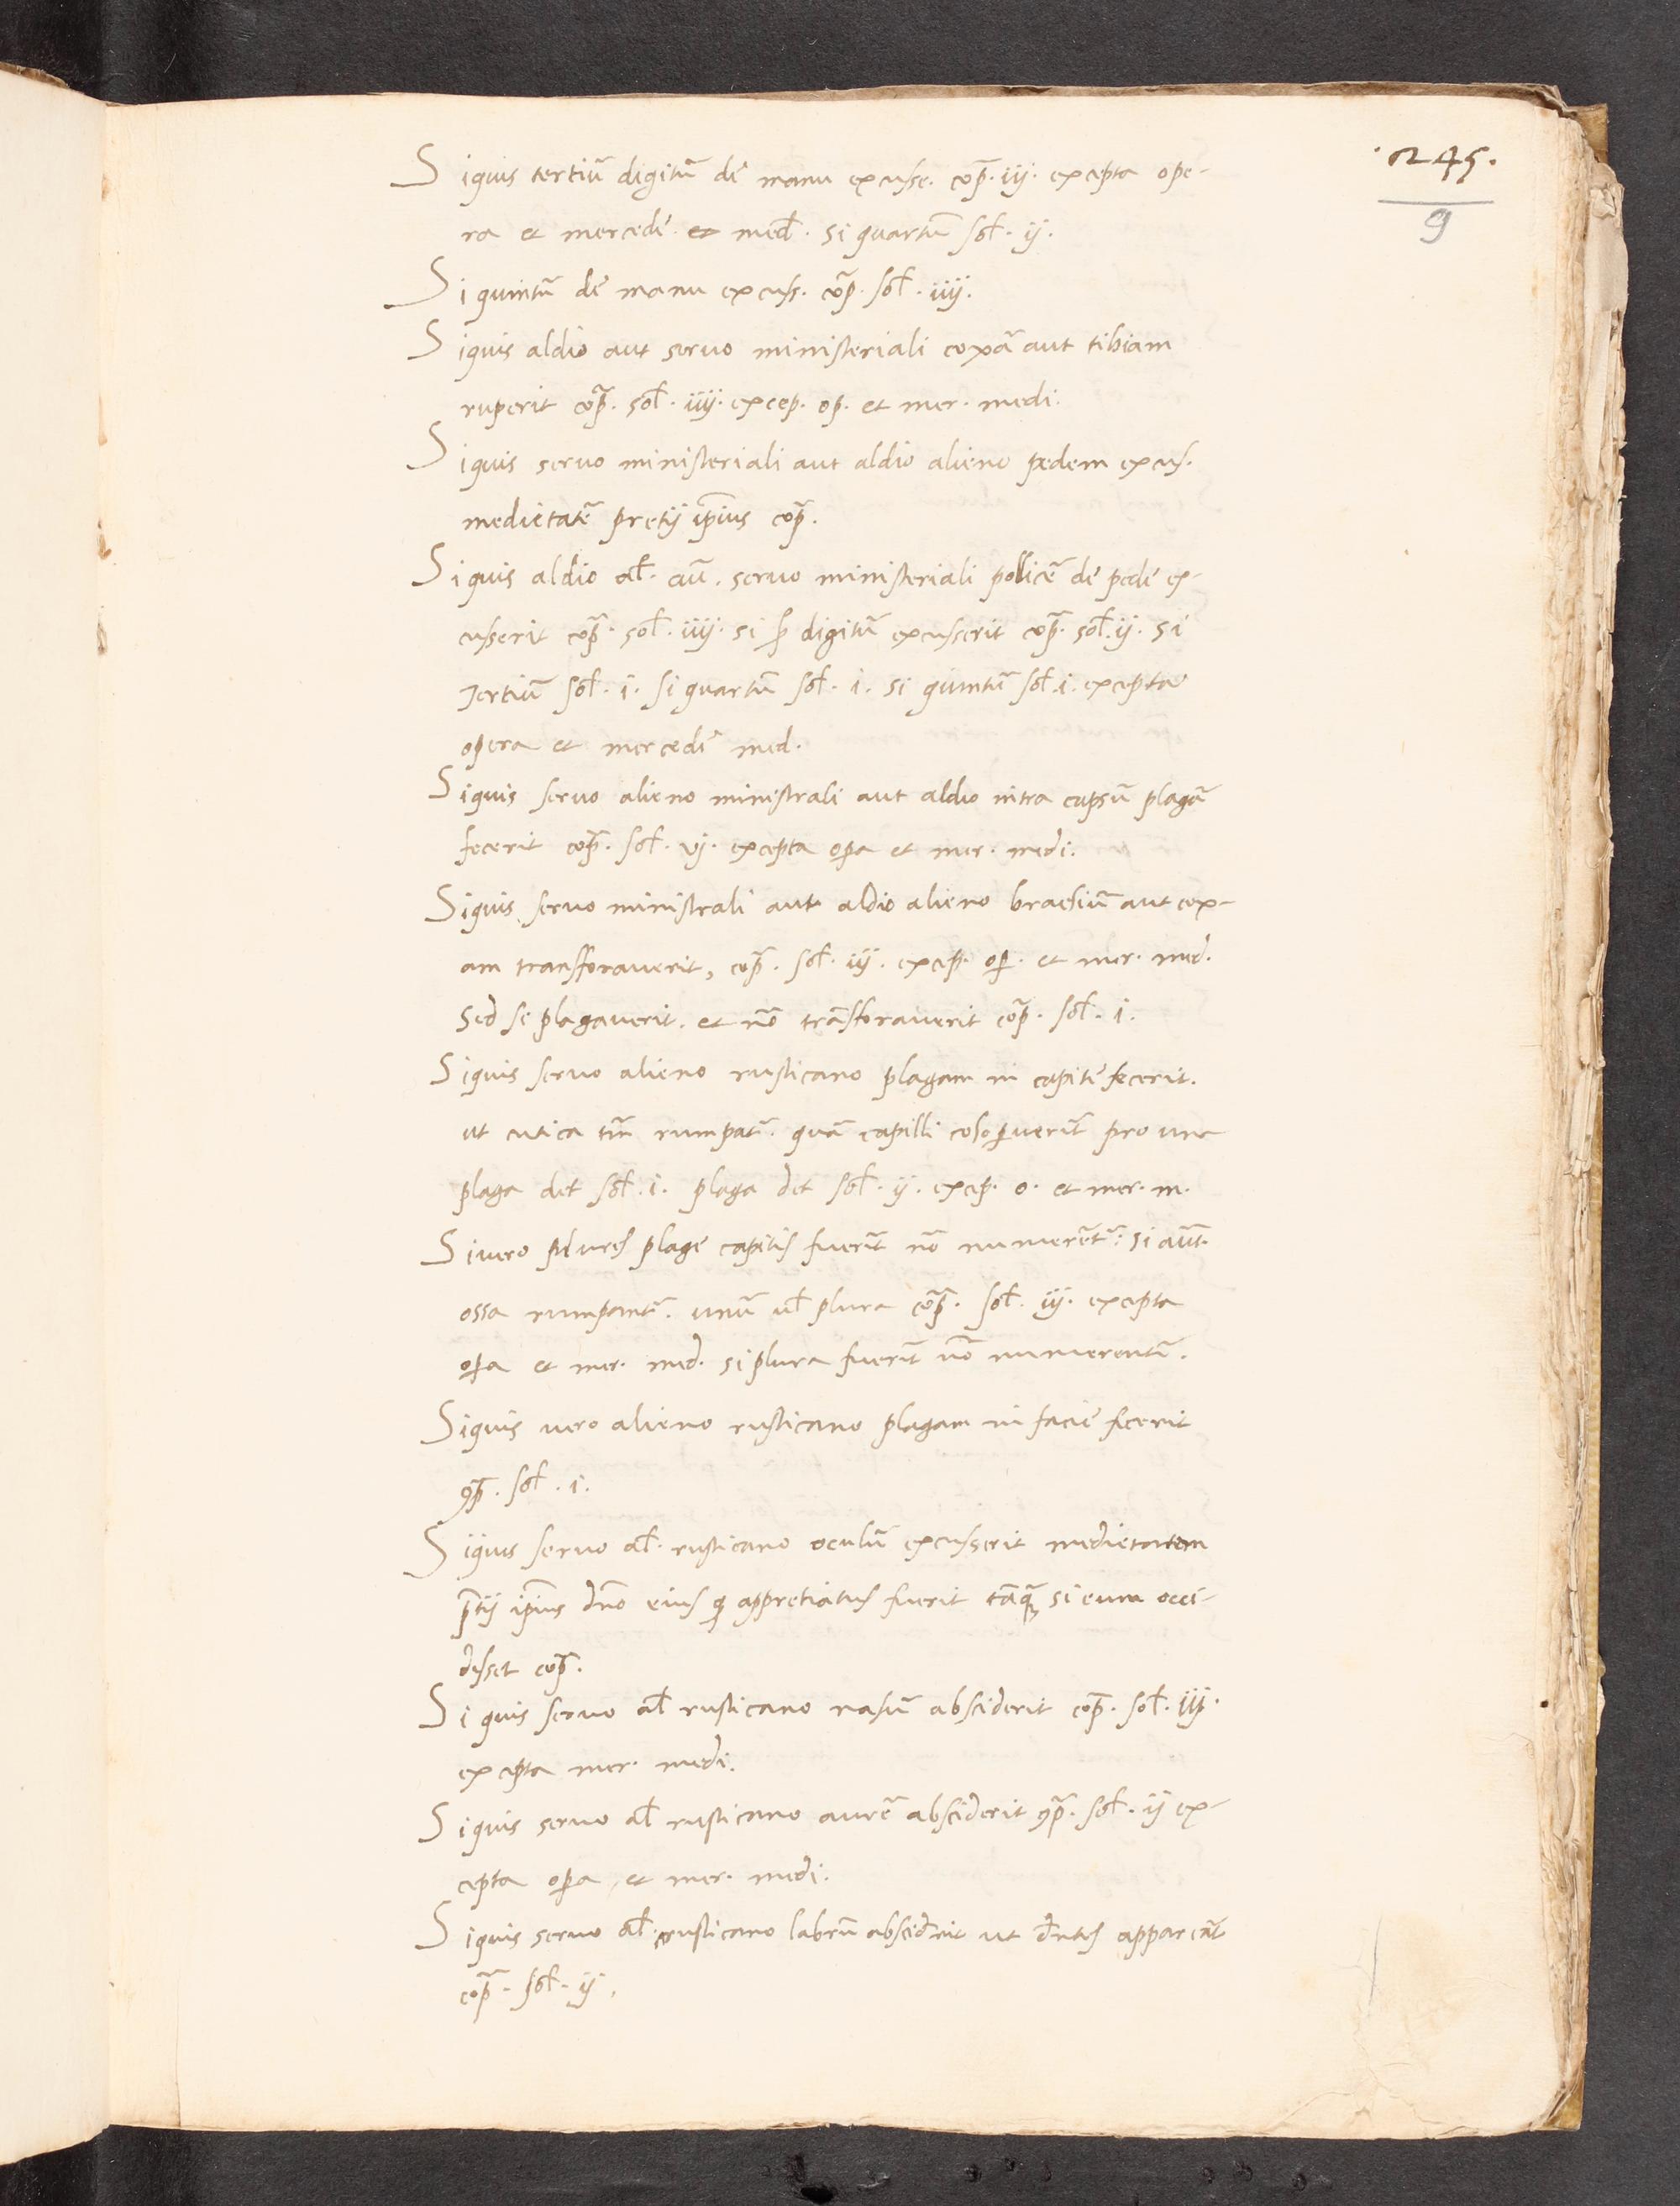 ·245·
9
Siquis tertiū digitū de manu excusse. cōp̄. iij. excepta ope-
ra et mercede. et med̄. si quartū sol̄. ij.
Si quintū de manu excuss. cōp. sol̄. iiij.
Siquis aldio aut seruo ministeriali coxā aut tibiam
ruperit cōp̄. sol̄. iiij. excep. op. et mer. medi.
Siquis seruo ministeriali aut aldio alieno pedem excus.
medietatē pretij ip̄ius cōp̄.
Siquis aldio al̄. aū. seruo ministeriali pollicē de pede ex-
cusserit cōp̄. sol̄. iiij. si digitū excusserit cōp̄. sol̄. ij. si
Tertiū sol̄. i. si quartū sol̄. i. si quintū sol̄. i. excepta
opera et mercede med.
Siquis seruo alieno ministrali aut aldio intra capsū plagā
fecerit cōp̄. sol̄. vj. excepta op̄a et mer. medi.
Siquis seruo ministrali aut aldio alieno brachiū aut cox-
am transforauerit, cōp̄. sol̄. iij. excep. op̄. et mer. med.
Sed si plagauerit. et nō trāsforauerit cōp̄. sol̄. i.
Siquis seruo alieno rusticano plagam in capite fecerit.
ut cutica tm̄ rumpat̄. quā capilli cooperuerīt pro una
plaga det sol̄. i. plaga det sol̄. ij. excep. o. et mer. m.
Si uero plures plage capitis fuerīt nō numerēt̄: si aūt
ossa rumpant̄. unū ul̄ plura cōp̄. sol̄. iij. excepta
op̄a et mer. med. si plura fuerīt nō numerent̄.
Siquis uero alieno rusticano plagam in facie fecerit
9p̄. sol̄. i.
Siquis seruo al̄. rusticano oculū excusserit medietatem
p̄tij ip̄ius dn̄o eius q̄ appretiatus fuerit tāq̄ si eum occi-
disset cōp̄.
Si quis seruo al̄ rusticano nasū absciderit cōp̄. sol̄. iiij.
excepta mer. medi.
Siquis seruo al̄ rusticano aurē absciderit 9p̄. sol̄. ij ex-
cepta op̄a et mer. medi.
Siquis seruo al̄. rusticano labrū absciderit ut dētes appareāt
cōp̄. sol̄. ij.